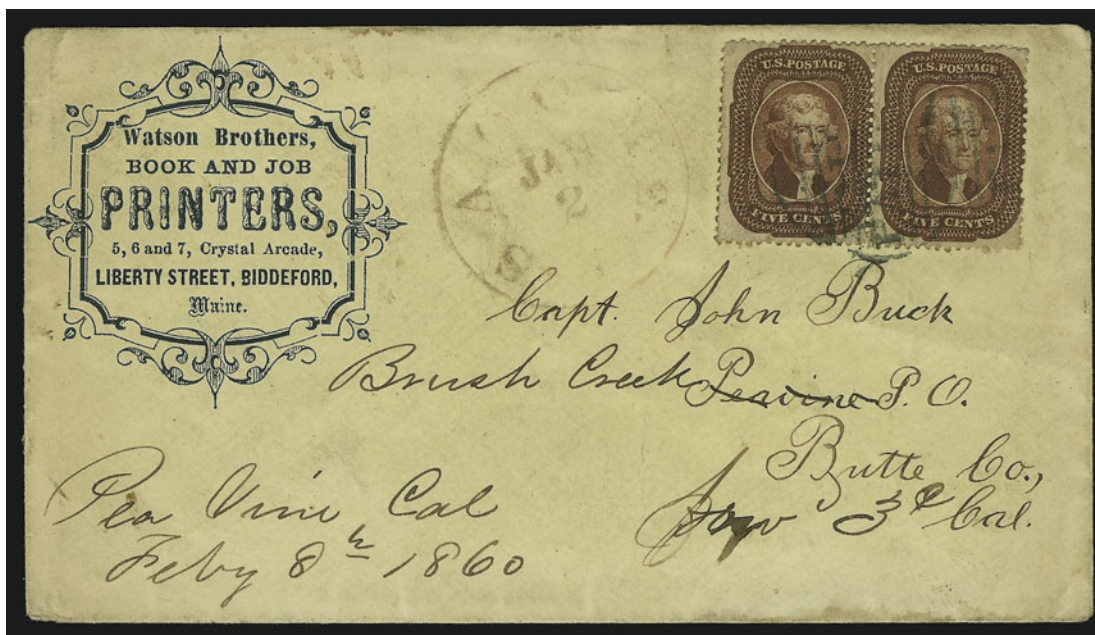 Watson Brothers,
BOOK AND JOB
PRINTERS,
5, 6 and 7, Crystal Arcade,
LIBERTY STREET, BIDDEFORD,
Maine.
JAN
2
U.S. POSTAGE
FIVE CENTS
U.S. POSTAGE
FIVE CENTS
Capt. John Buck
Brush Creek Peavine P. O.
Butte Co.,
3c Cal.
Pea Vine Cal
Feby 8th 1860